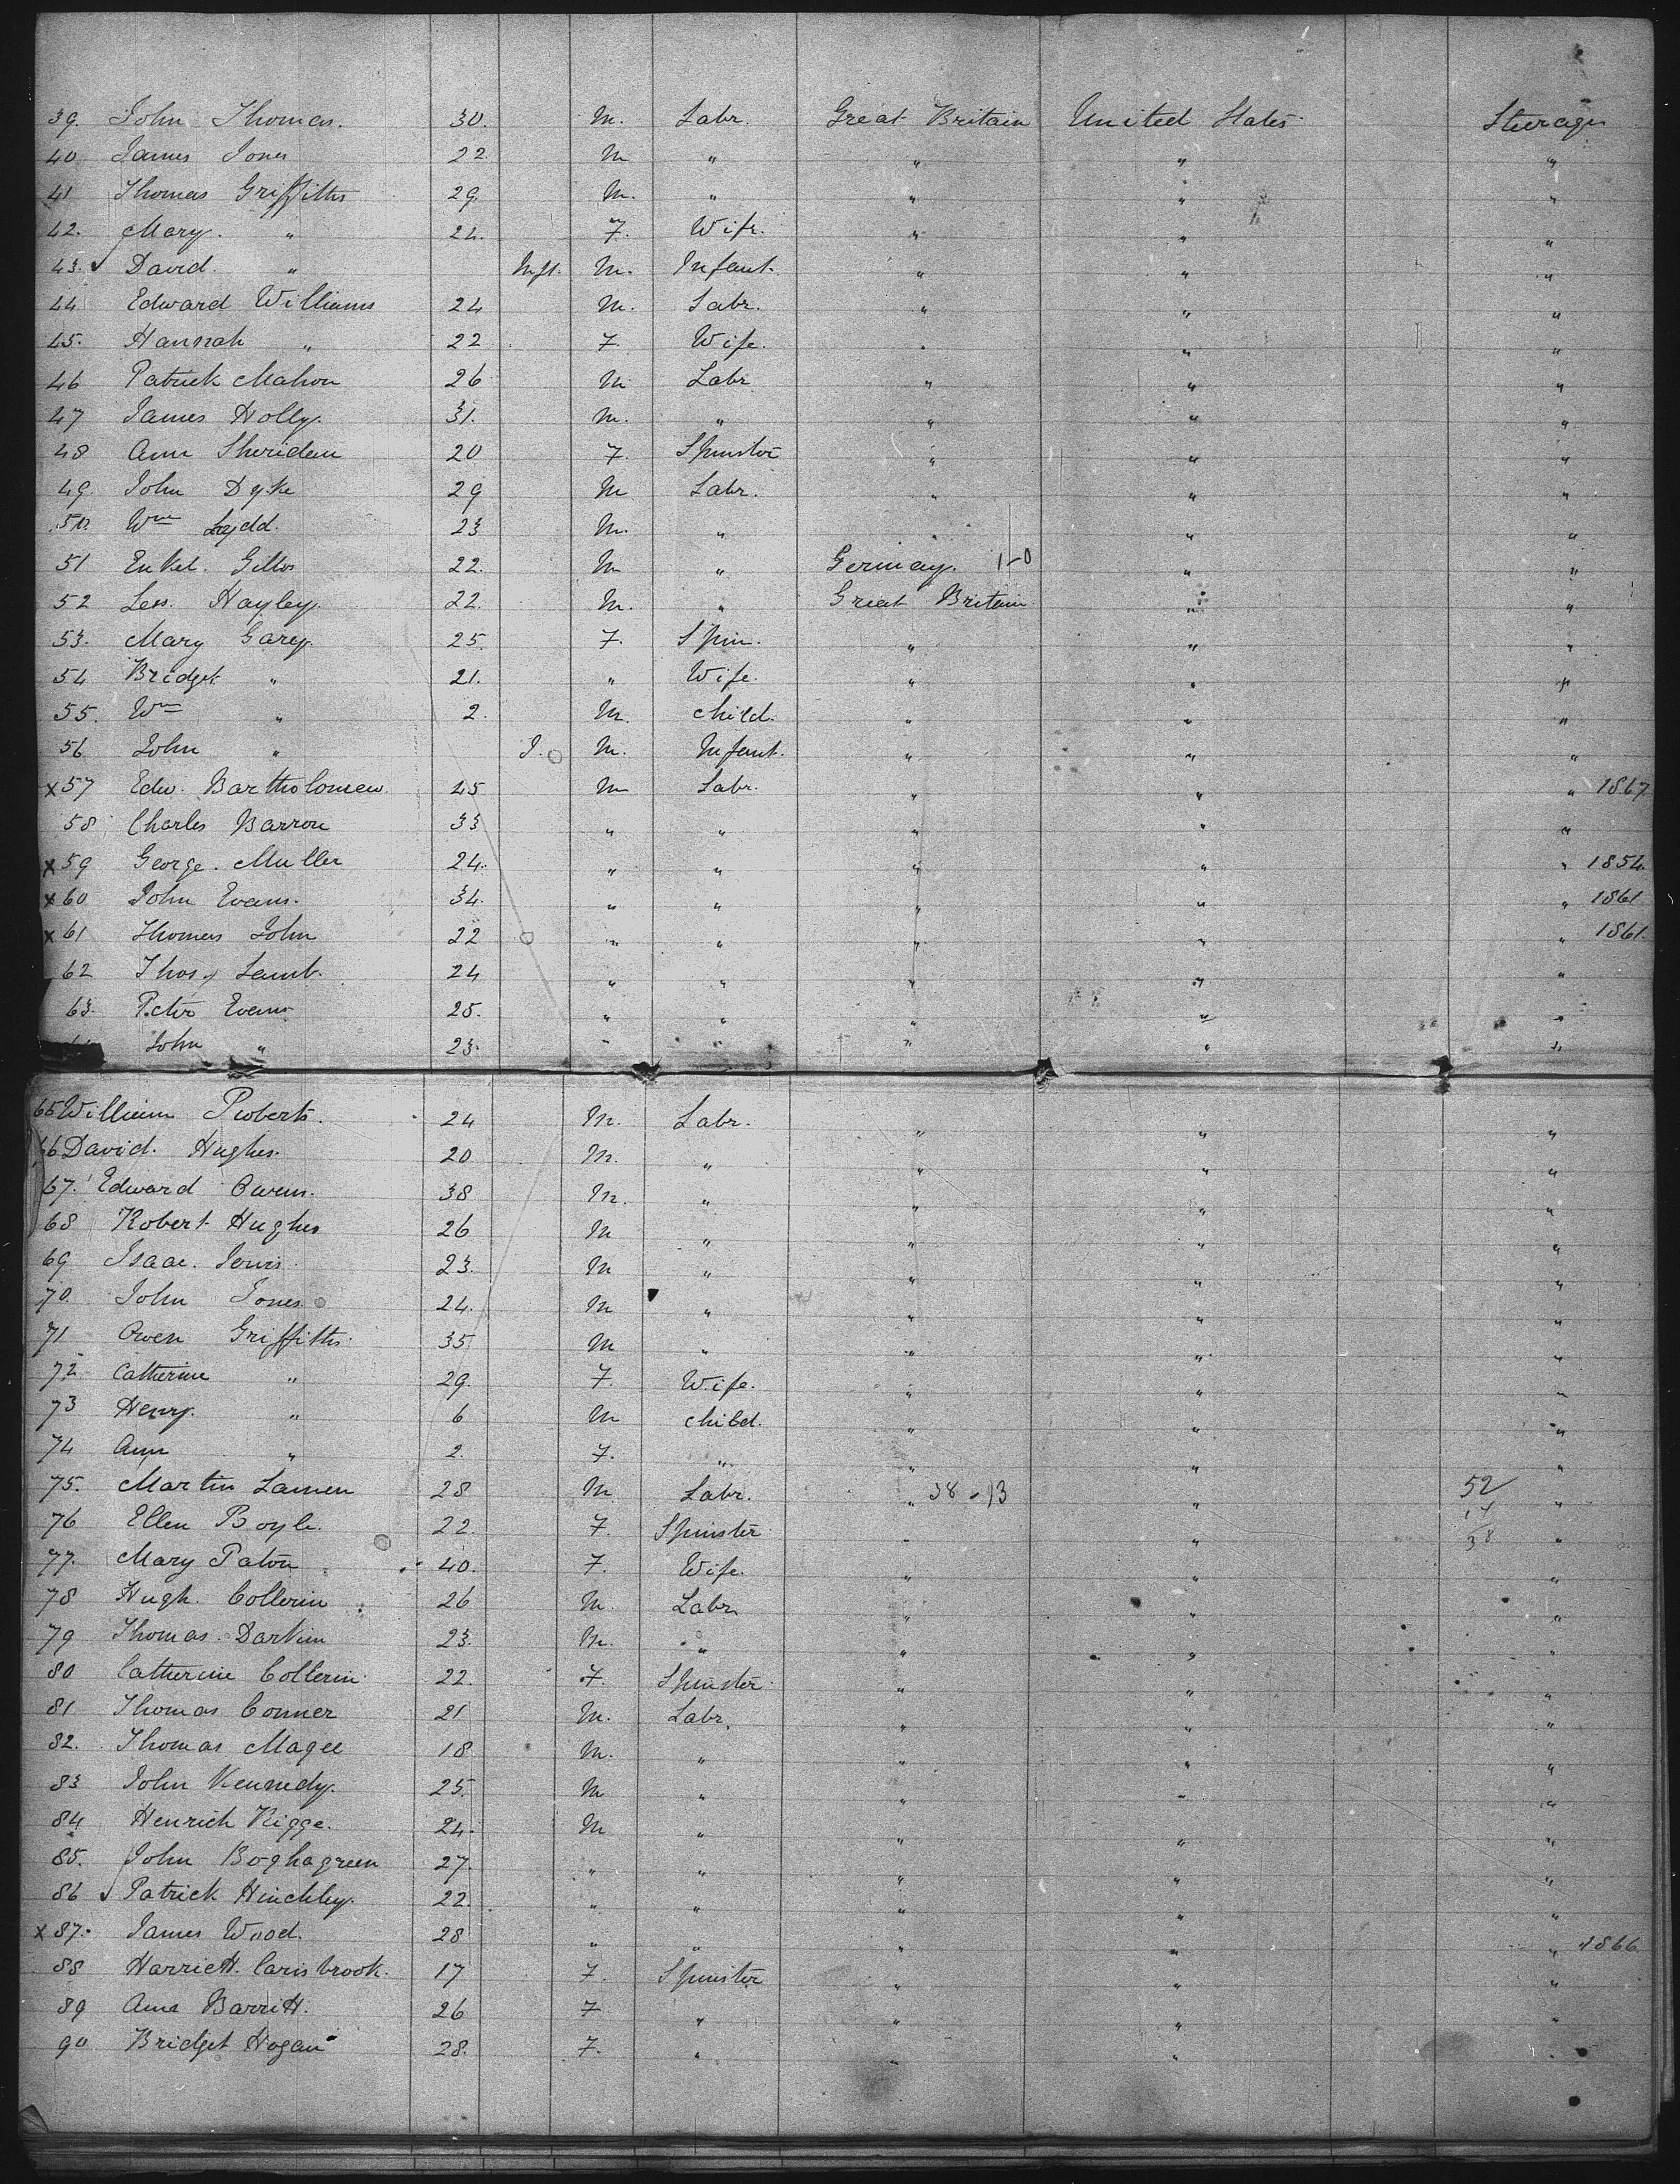 39. John Thomas. 30. M. Labr. Great Britain United States Steerage
40 James Jones 22. M " " " "
41 Thomas Griffiths 29. M. " " " "
42. Mary. " 22. F. Wife. " " "
43. David. " Inft. M. Infant. " " "
44 Edward Williams 24 M. Labr. " " "
45. Hannah " 22 F. Wife. " " "
46 Patrick Mahon 26 M Labr " " "
47 James Holly. 31. M. " " " "
48 Ann Sheridan 20 F. Spinster " " "
49. John Dyke 29 M Labr. " " "
50. Wm Lydd. 23 M. " " " "
51 22. M " Germany. 1-0 " "
52 Less. Hayley. 22. M. " Great Britain " "
53. Mary Garey. 25. F. Spin. " " "
54 Bridget " 21. " Wife. " " "
55. Wm " 2. M. Child. " " "
56 John " I. M. Infant. " " "
x 57 Edw. Bartholomew 45 M Labr. " " " 1867
58 Charles Barron 33 " " " " "
x 59 George. Muller 24. " " " " " 1854.
x 60 John Evans. 34. " " " " " 1861
x 61 Thomas John 22 " " " " " 1861.
62 Thos. Lamb. 24 " " " " "
63. Peter Evans 25. " " " " "
John " 23. " " " " "
65 William Roberts. 24 M. Labr. " " "
66 David. Hughes. 20 M. " " " "
67. Edward Owens. 38 M. " " " "
68 Robert Hughes 26 M " " " "
69 Isaac. 23. M " " " "
70. John Jones. 24. M " " " "
71 Owen Griffiths. 35 M " " " "
72 Catherine " 29. F. Wife. " " "
73 Henry. " 6 M Child. " " "
74 Ann " 2. F. " " " "
75. Martin Lamen 28 M Labr. " 38-13 " 52 "
76 Ellen Boyle. 22. F. Spinster " " 14 38 "
77. Mary Paton 40. F. Wife. " " "
78 Hugh. Collerin 26 M. Labr " " "
79 Thomas Darkin 23. M. " " " "
80 Catherine Collerin 22. F. Spinster " " "
81 Thomas Conner 21 M. Labr. " " "
82. Thomas Magee 18 M. " " " "
83 John Kennedy. 25. M " " " "
84 Henrich Rigge. 24. M " " " "
85. John Boghagreen 27. " " " " "
86 Patrick Hinchley. 22. " " " " "
x 87. James Wood. 28 " " " " " 1866
88 Harriett. Carisbrook. 17 F. Spinster " " "
89 Ann Barritt. 26 F " " " "
90 Bridget Hogan 28. F. " " " "